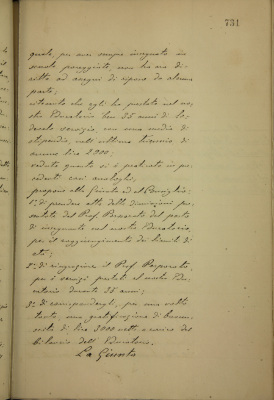 731
quale, per aver sempre insegnato in
scuole pareggiate, non ha ora di-
ritto ad assegni di riposo da alcuna
parte;
ritenuto che egli ha prestato nel no-
stro Educatorio ben 35 anni di lo-
devole servizio, con una media di
stipendio, nell'ultimo triennio di
annue lire 2000;
veduto quanto si è praticato in pre-
cedenti casi analoghi;
propone alla Giunta ed al Consiglio:
1.° di prendere atto delle dimissioni pre-
sentate dal Prof. dal posto
di insegnante nel nostro Educatorio,
per il raggiungimento dei limiti di
età;
2.° di ringraziare il Prof.
per i servizi prestati al nostro Edu-
catorio durante 35 anni;
3.° di corrispondergli, per una volta
tanto, una gratificazione di buonu-
scita di lire 3000 nette a carico del
bilancio dell'Educatorio.
La Giunta